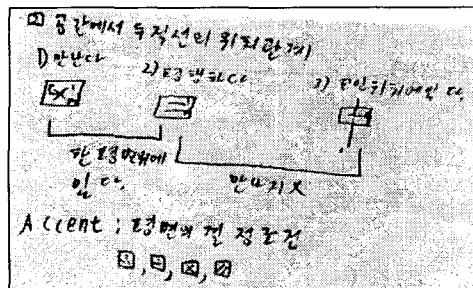 ② 공간에서 두 직선의 위치관계
1) 만난다
2) 평행하다
3) 꼬인위치에 있다.
한 평면위에
있다.
만나지 X
Accent : 평면의 결정조건